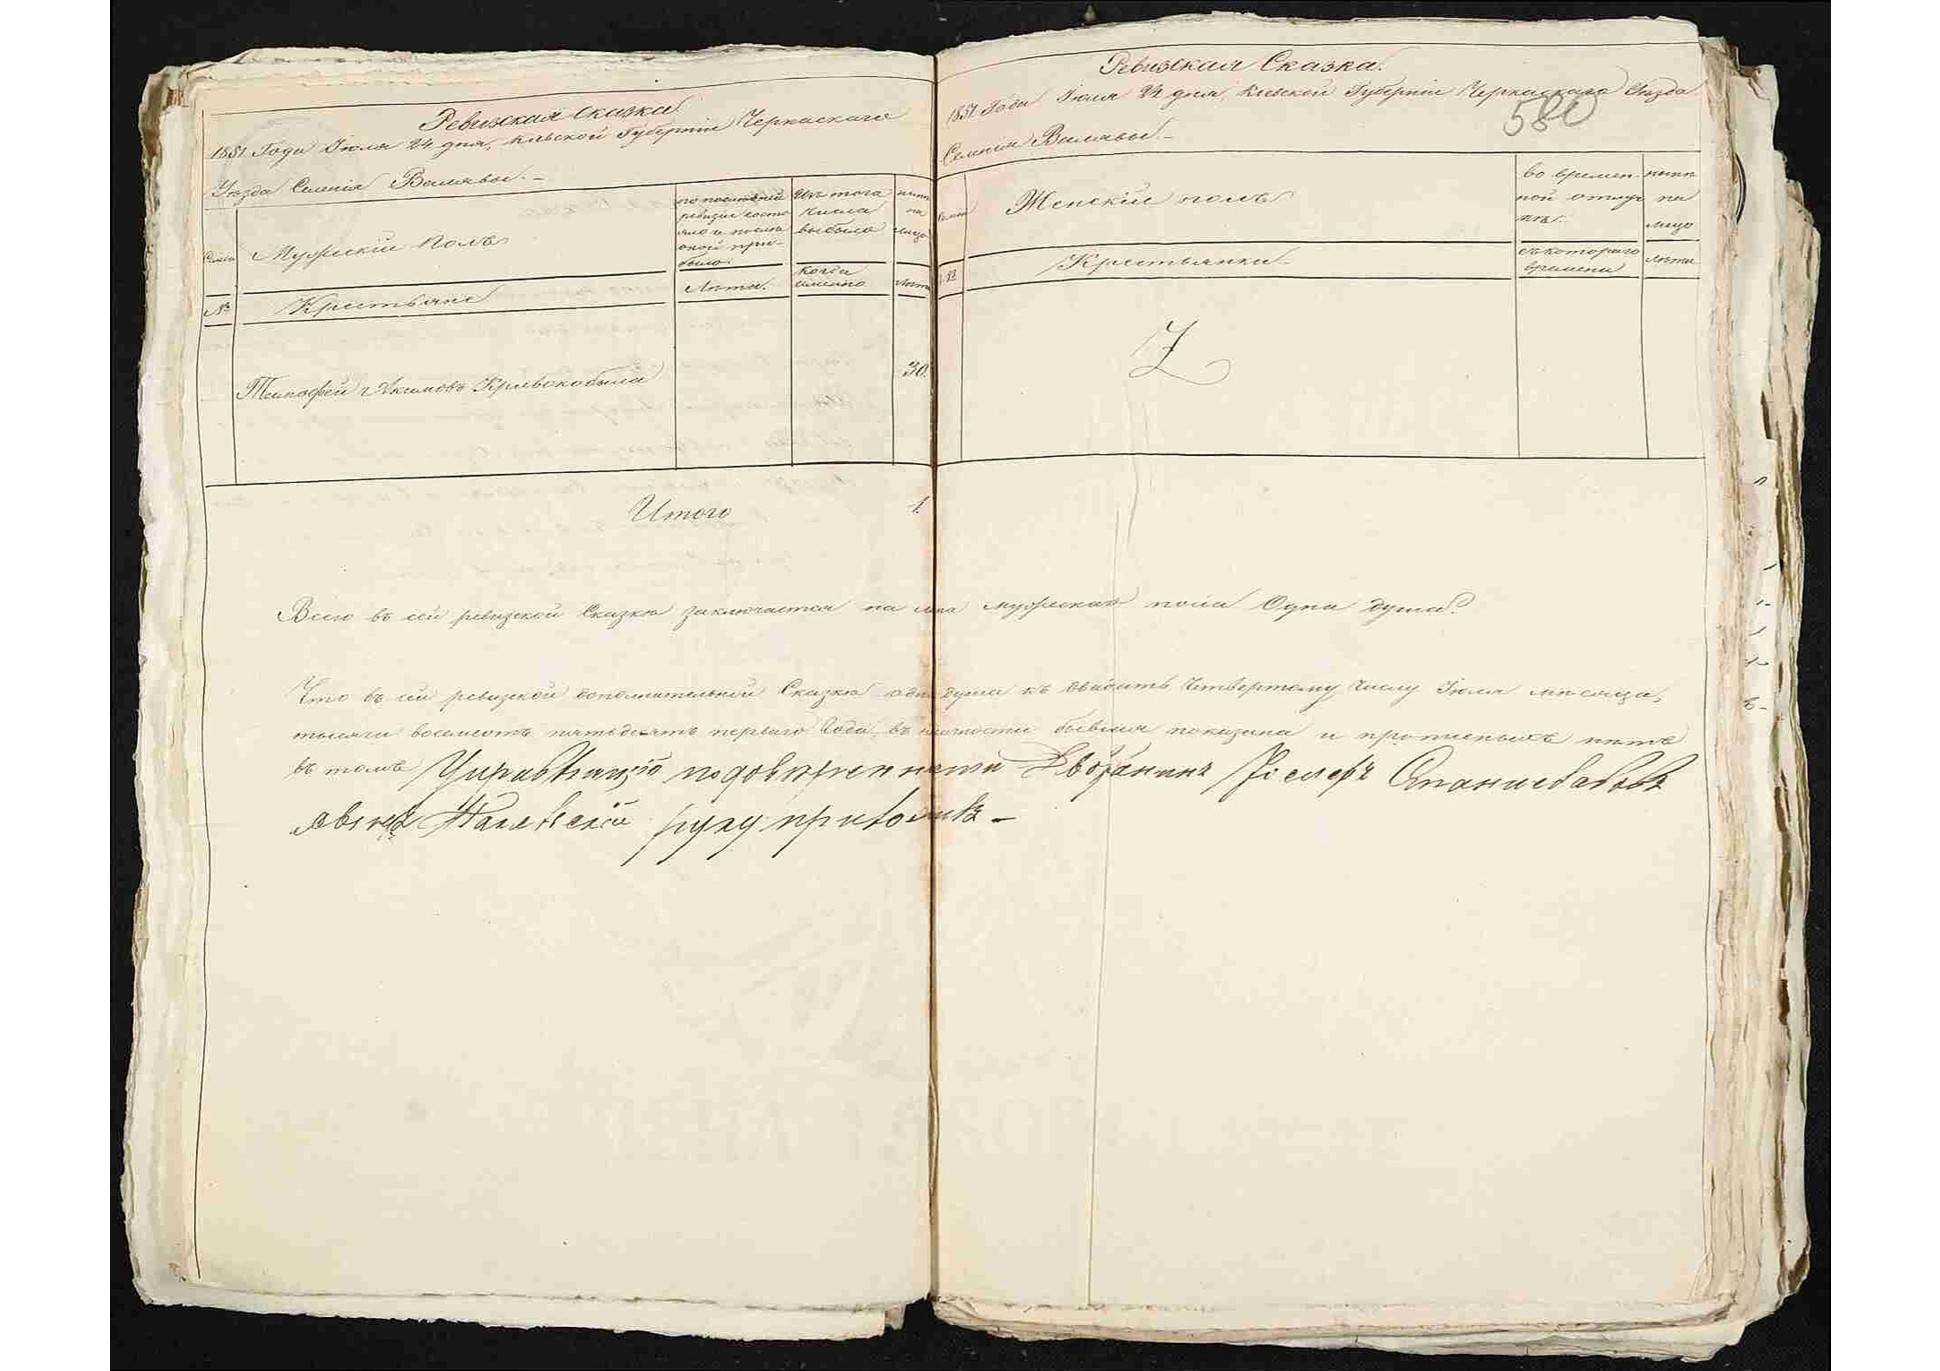 Ревизская Сказка
1851 Года Іюля 24 дня, Кіевской Губерніи Черкаскаго
Уѣзда Селенія Валявы. –
Семьи
Мужескій Полъ
по послѣдней
ревизіи состо
яло и послѣ
оной при-
было.
Изъ того
числа
выбыло
нынѣ
на
лицо
№
Крестьяне
Лѣта.
когда
именно
Лѣта
Тимофей Якимовъ Кривокобыла
30.
Итого 1.
Ревизская Сказка.
1851 Года Іюля 24 дня, Кіевской Губерніи Черкаскаго Уѣзда
580
Селенія Валявы. –
Семьи
Женскій полъ
во времен-
ной отлуч
кѣ.
нынѣ
на
лицо
№
Крестьянки.
съ котораго
времени
Лѣта
Всего въ сей ревизской Сказкѣ заключается на мужеска пола Одна душа.
Что въ сей ревизской дополнительной Сказкѣ одна душа къ двадцать Четвертому Числу Іюля мѣсяца,
тысячи восемсотъ пятьдесятъ перваго Года въ наличности бывшая показана и прописныхъ нѣтъ
въ томъ Управляющій по довѣренности Дворянинъ Іосифъ Станиславовъ
руку приложилъ –